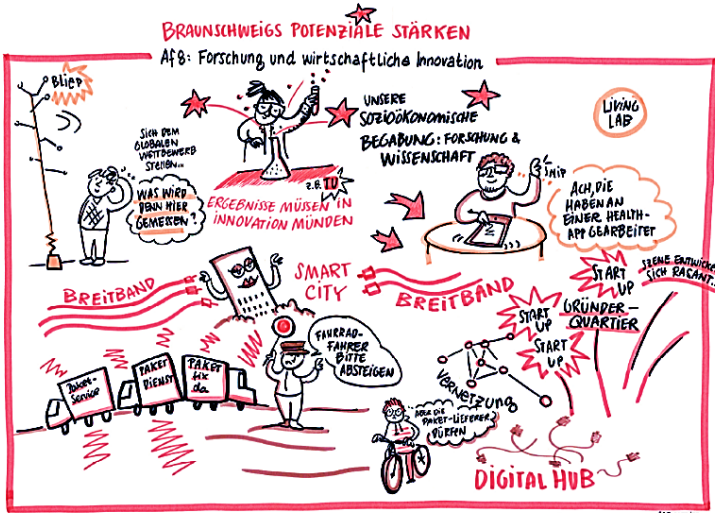 BRAUNSCHWEIGS POTENZIALE STÄRKEN
Af8: Forschung und wirtschaftliche Innovation
BLIEP
SICH DEM
GLOBALEN
WETTBEWERB
STELLEN...
WAS WIRD
DENN HIER
GEMESSEN?
z.B. TU
ERGEBNISSE MÜSSEN IN
INNOVATION MÜNDEN
UNSERE
SOZIOÖKONOMISCHE
BEGABUNG: FORSCHUNG &
WISSENSCHAFT
LIVING
LAB
WIP
ACH, DIE
HABEN AN
EINER HEALTH-
APP GEARBEITET
BREITBAND
SMART
CITY
BREITBAND
START
UP
SZENE ENTWICKE
SICH RASANT...
START
UP
GRÜNDER-
QUARTIER
START
UP
FAHRRAD-
FAHRER
BITTE
ABSTEIGEN
Paket-
Service
PAKET
DIENST
PAKET
fix
da
VERNETZUNG
ABER DIE
PAKET-LIEFERER
DÜRFEN?
DIGITAL HUB